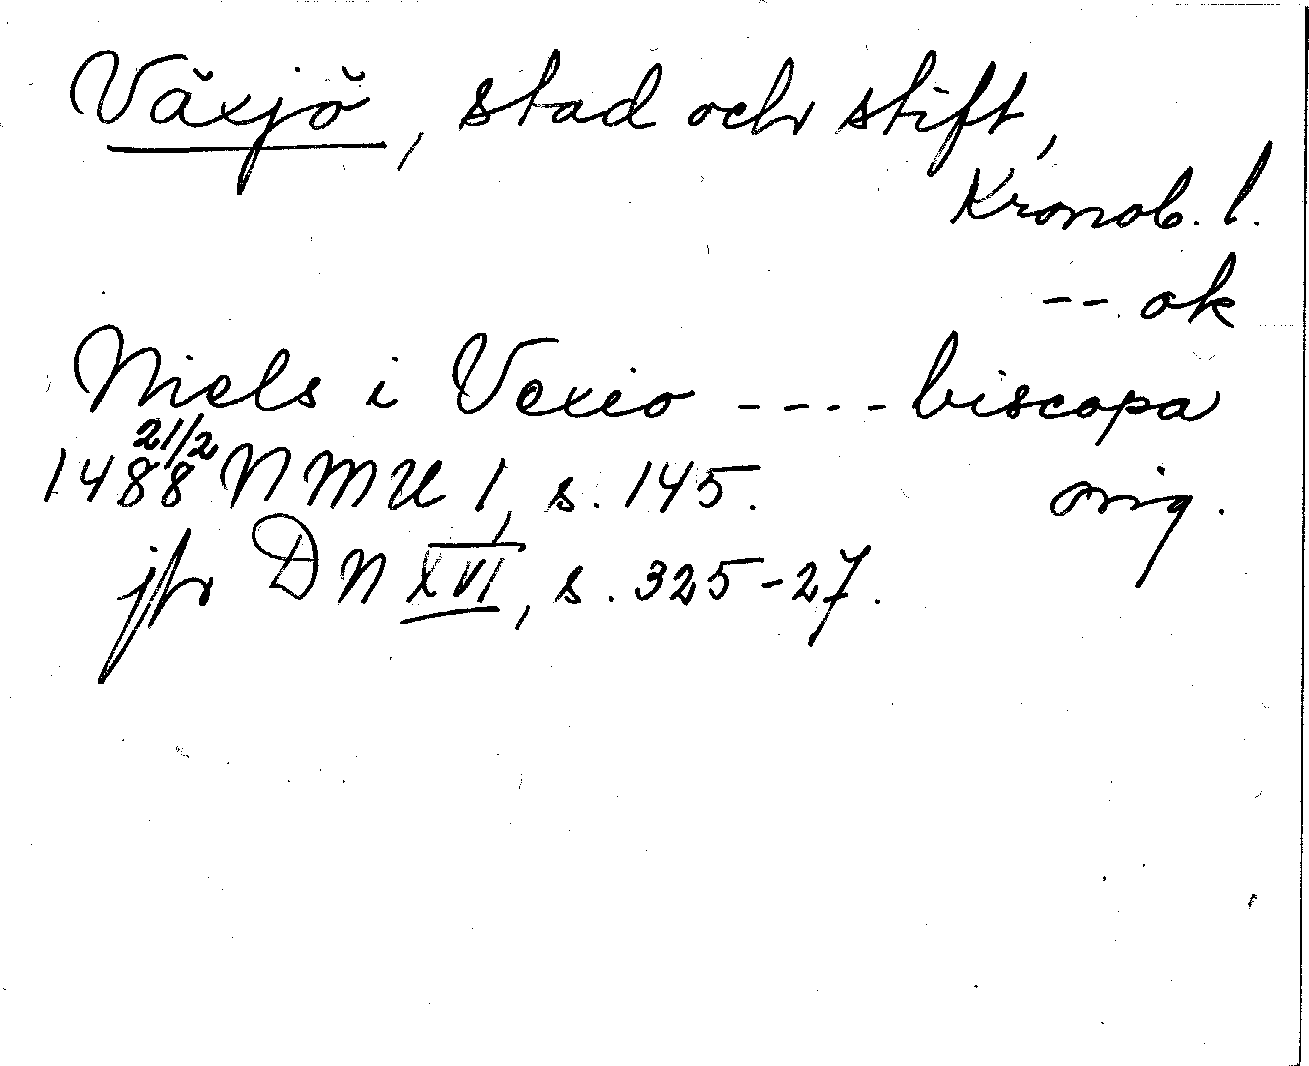 Växjö, stad och stift,
Kronob. l.
-- ok
Niels i Vexio ---- biscopa
1488 21/2 NMU 1, s. 145. orig.
jfr DN XVI, s. 325-27.